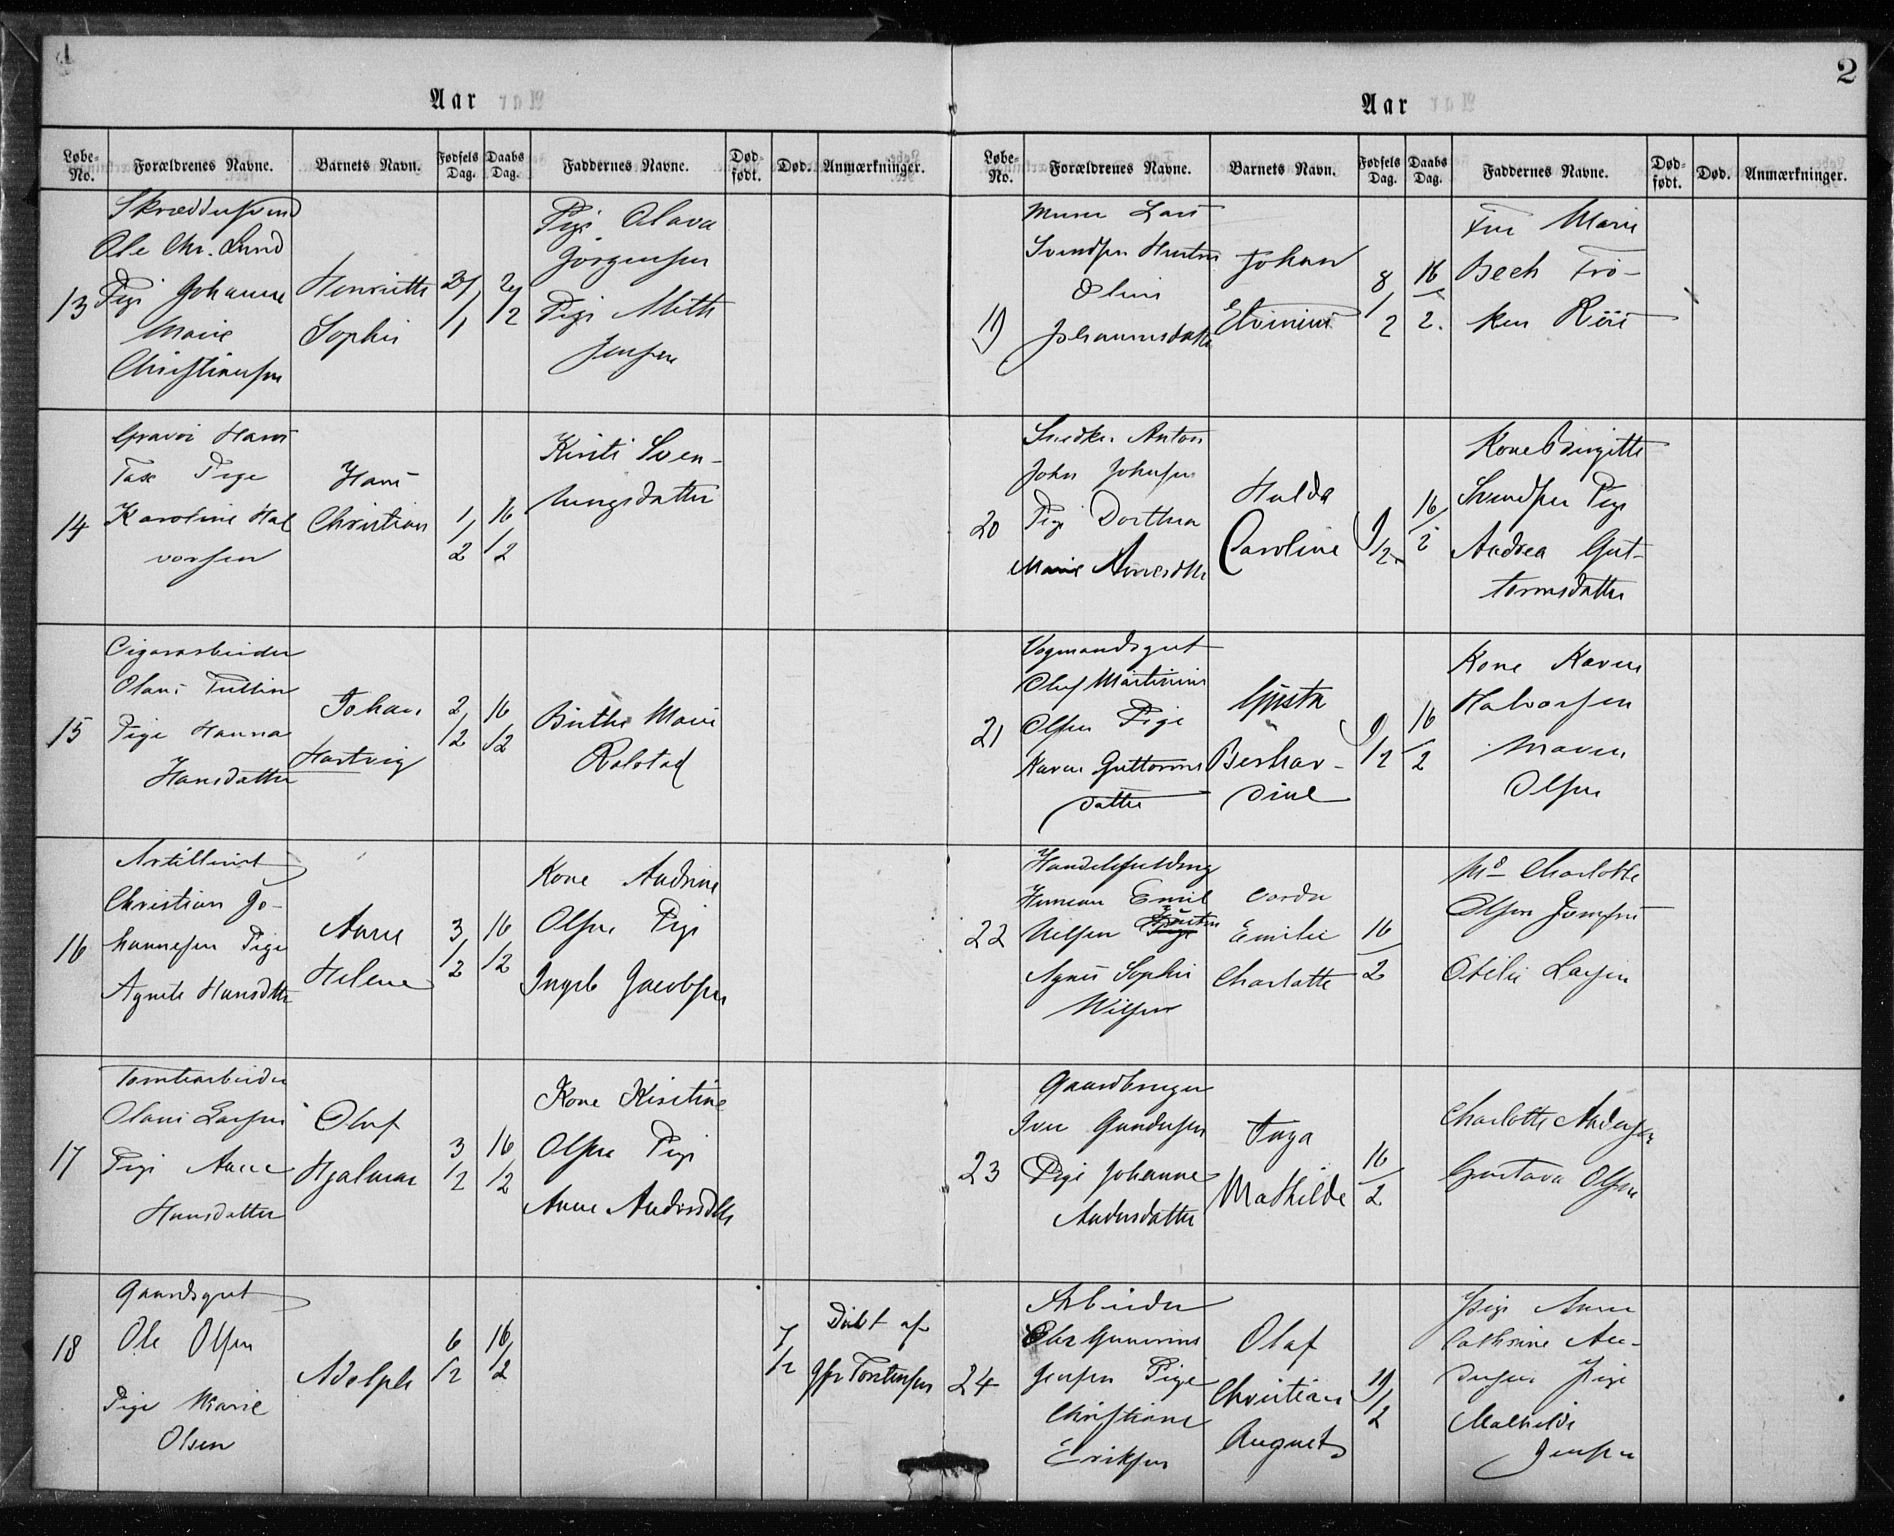 Aar
Løbe-No. Forældrenes Navne. Barnets Navn. Fødsels Dag. Daabs Dag. Faddernes Navne. Død-født. Død. Anmærkninger.
13
Skræddersvend
Ole Chr. Lund
Pige Johanne
Marie
Christiansen
Henriette
Sophie
Pige Olava
Jörgensen
Pige Mette
Jensen
14
Gravør Hans
Fax Pige
Karoline Hal
vorsen
Hans
Christian
1/2
16/2
Kirsti Sven-
nungsdatter
15
Cigararbeider
Olaus Tullin
Pige Hanna
Hansdatter
Johan
Hartvig
2/2
16/2
Birthe Marie
Rolstad
16
Artillerist
Christian Jo-
hannesen Pige
Agnete Hansdtr
Anne
Helene
3/2
16/2
Kone Andrine
Olsen Pige
Ingeb Jacobsen
17
Tomtearbeider
Olaus Larsen
Pige Anne
Hansdatter
Olaf
Hjalmar
3/2
16/2
Kone Kristine
Olsen Pige
Anne Andersdtr
18
Gaardsgut
Ole Olsen
Pige Marie
Olsen
Adolph
6/2
16/2
7/2
Döbt af
Torstensen
2
Aar
Løbe-No. Forældrenes Navne. Barnets Navn. Fødsels Dag. Daabs Dag. Faddernes Navne. Død-født. Død. Anmærkninger.
19
Murer Lars
Svendsen Hustru
Oline
Johannesdatter
Johan
Elvinius
8/2
16/2.
Fru Marie
Bech Frö-
ken Riis
20
Snedker Anton
John Johnsen
Pige Dorthea
Marie Arnesdtr
Hulda
Caroline
9/2
16/2
Kone Birgitte
Svendsen Pige
Andrea Gut-
tormsdatter
21
Vognmandsgut
Oluf Martinius
Olsen Pige
Karen Guttorms
datter
Gusta
Bernhar-
dine
9/2
16/2
Kone Karen
Halvorsen
Maren
Olsen
22
Handelsfuldmg
Herman Emil
Nilsen Hustru
Agnes Sophie
Nilsen
Emilie
Charlotte
16/2
Charlotte
Olsen Jomfru
Otilie Larsen
23
Gaardbruger
Iver Gundersen
Pige Johanne
Andersdatter
Inga
Mathilde
16/2
Charlotte Andersen
Gustava Olsen
24
Arbeider
Gunerius
Jensen Pige
Christiane
Eriksen
Olaf
Christian
August
19/2
Pige Anne
Cathrine An-
dersen Pige
Mathilde
Jensen